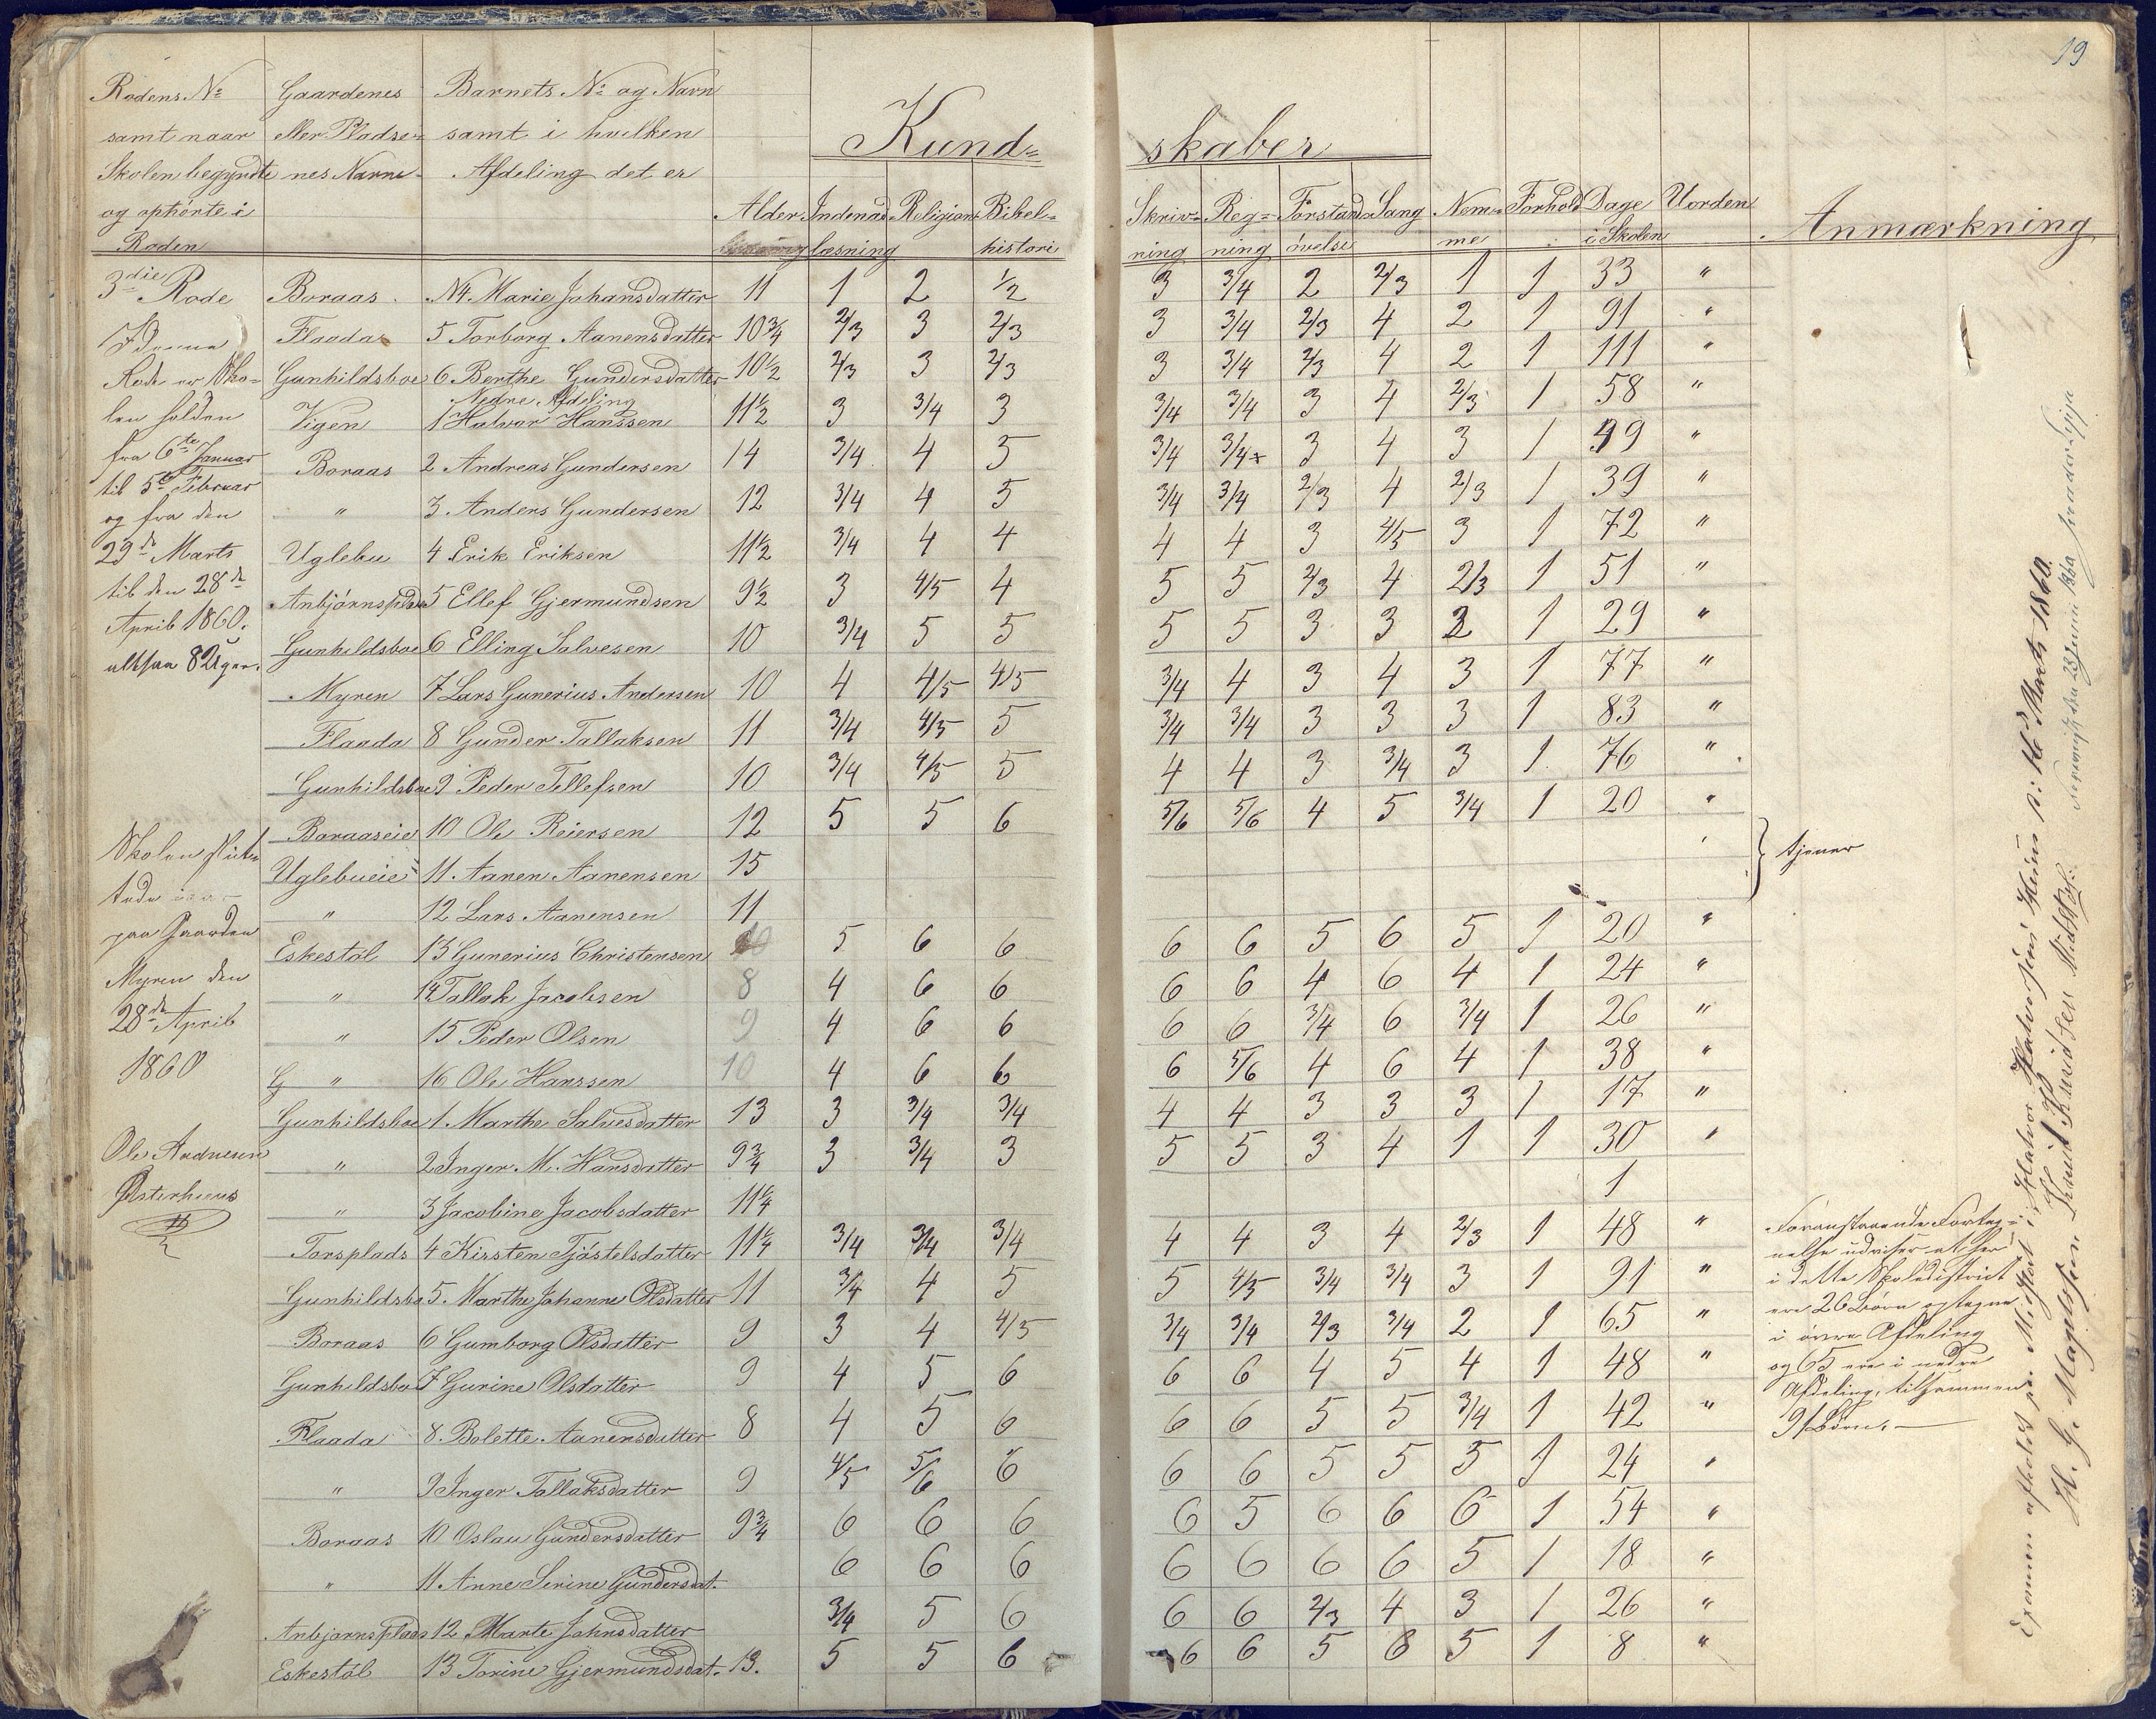 19
Rodens No samt naar Skolen begyndte og ophörte i Roden
Gaardenes eller Pladse-nes Navne
Barnets No og Navn samt i hvilken Afdeling det er
Kund= skaber
Alder Indenadlæsning Religion Bibel=histori Skriv=ning Reg=ning Forstandsövelse Sang Nem=me Forhold Dage i Skolen Uorden Anmærkning
3die Rode
I denne
Rode er Sko=
len holden
fra 6te Januar
til 5te Februar
og fra den
29de Marts
til den 28de
April 1860.
altsaa 8 Uger.
Skolen slut=
tede
paa Gaarden
Myren den
28de April
1860
Ole Andresen
Østerhuus
Boraas No 4 Marie Johansdatter 11 1 2 1/2 3 3/4 2 2/3 1 1 33 "
Flaada 5 Torborg Aanensdatter 10 3/4 2/3 3 2/3 3 3/4 2/3 4 2 1 91 "
Gunhildsboe 6 Berthe Gundersdatter 10 1/2 2/3 3 2/3 3 3/4 2/3 4 2 1 111 "
Nedre Afdeling
Vigen 1 Halvor Hanssen 11 1/2 3 3/4 3 3/4 3/4 3 4 2/3 1 58 "
Boraas 2 Andreas Gundersen 14 3/4 4 5 3/4 3/4 3 4 3 1 49 "
" 3 Anders Gundersen 12 3/4 4 5 3/4 3/4 2/3 4 2/3 1 39 "
Uglebu 4 Erik Eriksen 11 1/2 3/4 4 4 4 4 3 4/5 3 1 72 "
Anbjörnsplads 5 Ellef Gjermundsen 9 1/2 3 4/5 4 5 5 2/3 4 2/3 1 51 "
Gunhildsboe 6 Elling Salvesen 10 3/4 5 5 5 5 3 3 2 1 29 "
Myren 7 Lars Gunerius Andersen 10 4 4/5 4/5 3/4 4 3 4 3 1 77 "
Flaada 8 Gunder Tallaksen 11 3/4 4/5 5 3/4 3/4 3 3 3 1 83 "
Gunhildsboe 9 Peder Tellefsen 10 3/4 4/5 5 4 4 3 3/4 3 1 76 "
Boraaseie 10 Ole Reiersen 12 5 5 6 5/6 5/6 4 5 3/4 1 20 "
Uglebueie 11 Aanen Aanensen 15 } tjener
" 12 Lars Aanensen 11
Eskestöl 13 Gunerius Christensen 10 5 6 6 6 6 5 6 5 1 20 "
" 14 Tallak Jacobsen 8 4 6 6 6 6 4 6 4 1 24 "
" 15 Peder Olsen 9 4 6 6 6 6 3/4 6 3/4 1 26 "
G " 16 Ole Hanssen 10 4 6 6 6 5/6 4 6 4 1 38 "
Gunhildsboe 1. Marthe Salvesdatter 13 3 3/4 3/4 4 4 3 3 3 1 17 "
" 2 Inger M. Hansdatter 9 3/4 3 3/4 3 5 5 3 4 1 1 30 "
" 3 Jacobine Jacobsdatter 11 1/4 1
Torsplads 4 Kirsten Tjöstelsdatter 11 1/4 3/4 3/4 3/4 4 4 3 4 2/3 1 48 "
Gunhildsbo 5. Marthe Johanne Olsdatter 11 3/4 4 5 5 4/5 3/4 3/4 3 1 91 "
Boraas 6 Gumborg Olsdatter 9 3 4 4/5 3/4 3/4 2/3 3/4 2 1 65 "
Gunhildsboe 7 Gurine Olsdatter 9 4 5 6 6 6 4 5 4 1 48 "
Flaada 8. Bolette Aanensdatter 8 4 5 6 6 6 5 5 3/4 1 42 "
" 9 Inger Tallaksdatter 9 4/5 5/6 6 6 6 5 5 5 1 24 "
Boraas 10 Oslau Gundersdatter 9 3/4 6 6 6 6 5 6 6 6 1 54 "
" 11. Anne Serine Gundersdat. 6 6 6 6 6 6 6 5 1 18 "
Anbjørnsplads 12 Marte Johnsdatter 3/4 5 6 6 6 2/3 4 3 1 26 "
Eskestöl 13 Torine Gjermundsdat. 13. 5 5 6 6 6 5 6 5 1 8 "
Foranstaaende Forteg=
nelse udviser at her
i dette Skoledistrict
ere 26 Börn optegne
i övre Afdeling
og 65 ere i nedre
Afdeling, tilsammen
91 Börn.
Examen afholdt 16de Marts 1860.
H. G. Magelssen Knud Knudsen